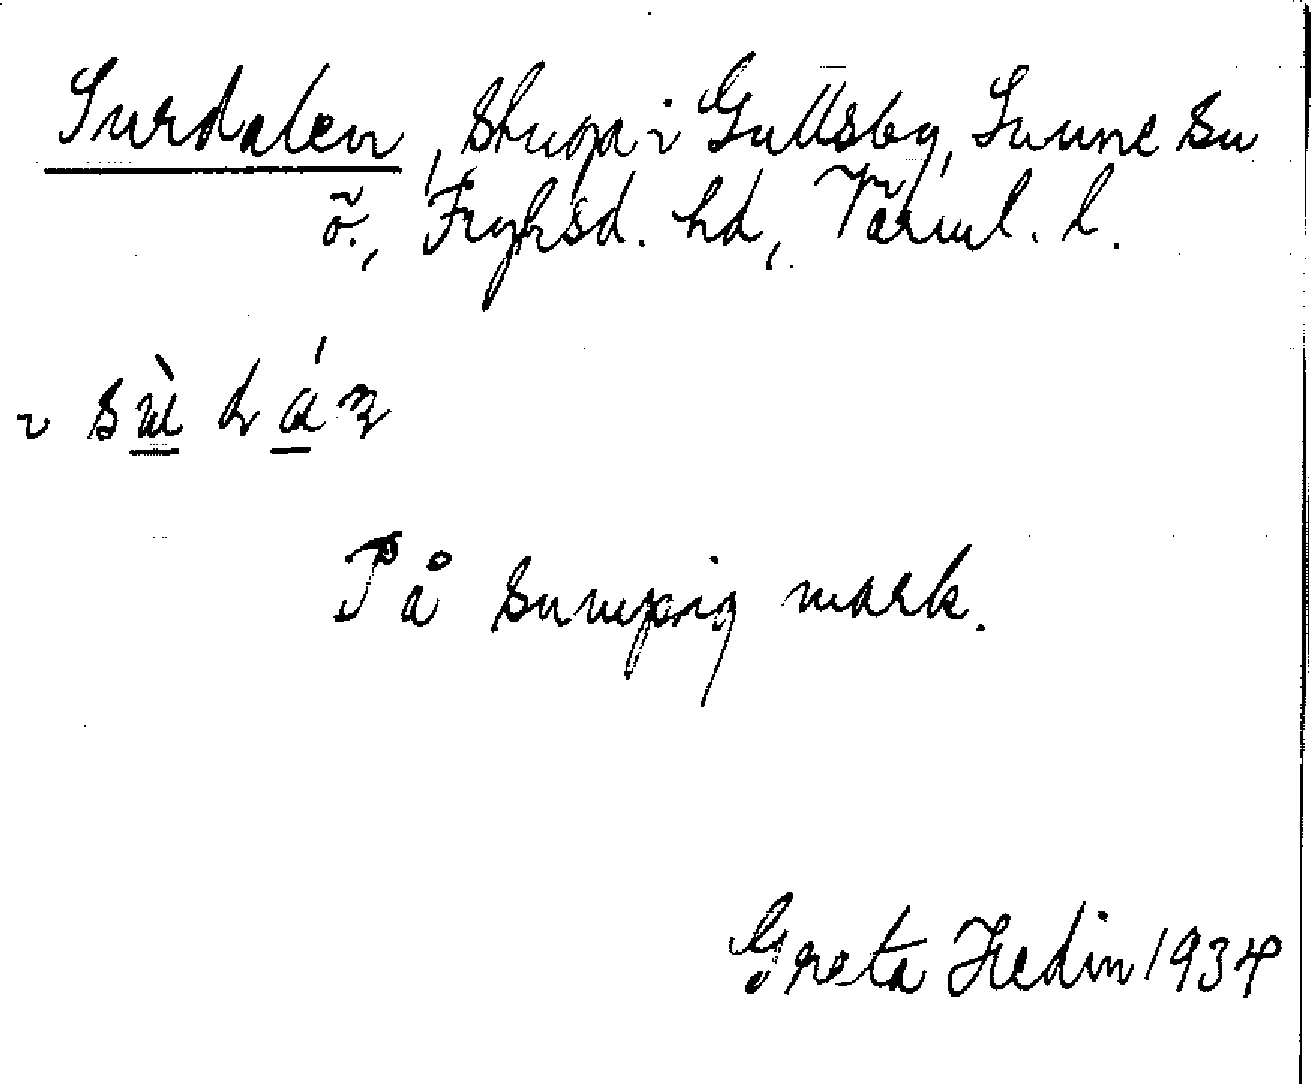 Surdalen, Stuga i Gullsby, Sunne Sn
ö., Fryksd. hd, Värml. l.
På sumpig mark.
Greta Hedin 1934